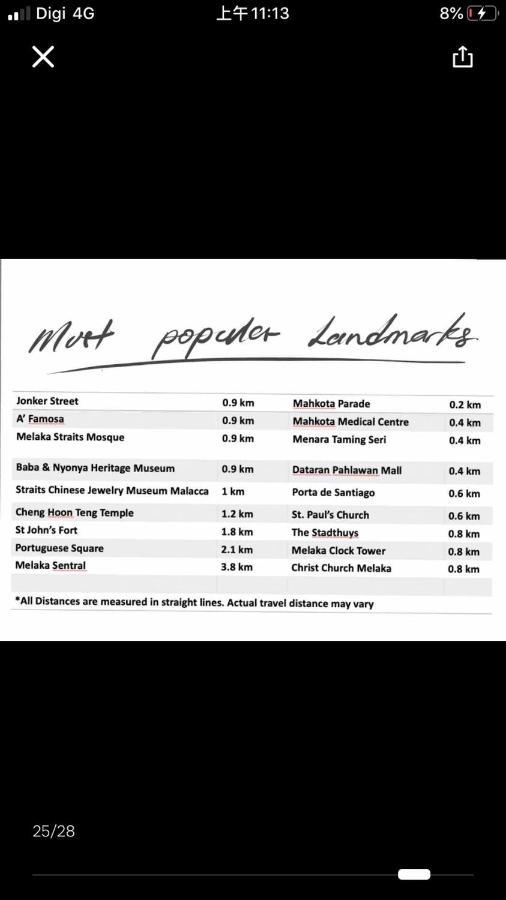 Digi 4G 上午11:13 8%
Most populer Landmarks
Jonker Street 0.9 km Mahkota Parade 0.2 km
A' Famosa 0.9 km Mahkota Medical Centre 0.4 km
Melaka Straits Mosque 0.9 km Menara Taming Seri 0.4 km
Baba & Nyonya Heritage Museum 0.9 km Dataran Pahlawan Mall 0.4 km
Straits Chinese Jewelry Museum Malacca 1 km Porta de Santiago 0.6 km
Cheng Hoon Teng Temple 1.2 km St. Paul's Church 0.6 km
St John's Fort 1.8 km The Stadthuys 0.8 km
Portuguese Square 2.1 km Melaka Clock Tower 0.8 km
Melaka Sentral 3.8 km Christ Church Melaka 0.8 km
*All Distances are measured in straight lines. Actual travel distance may vary
25/28